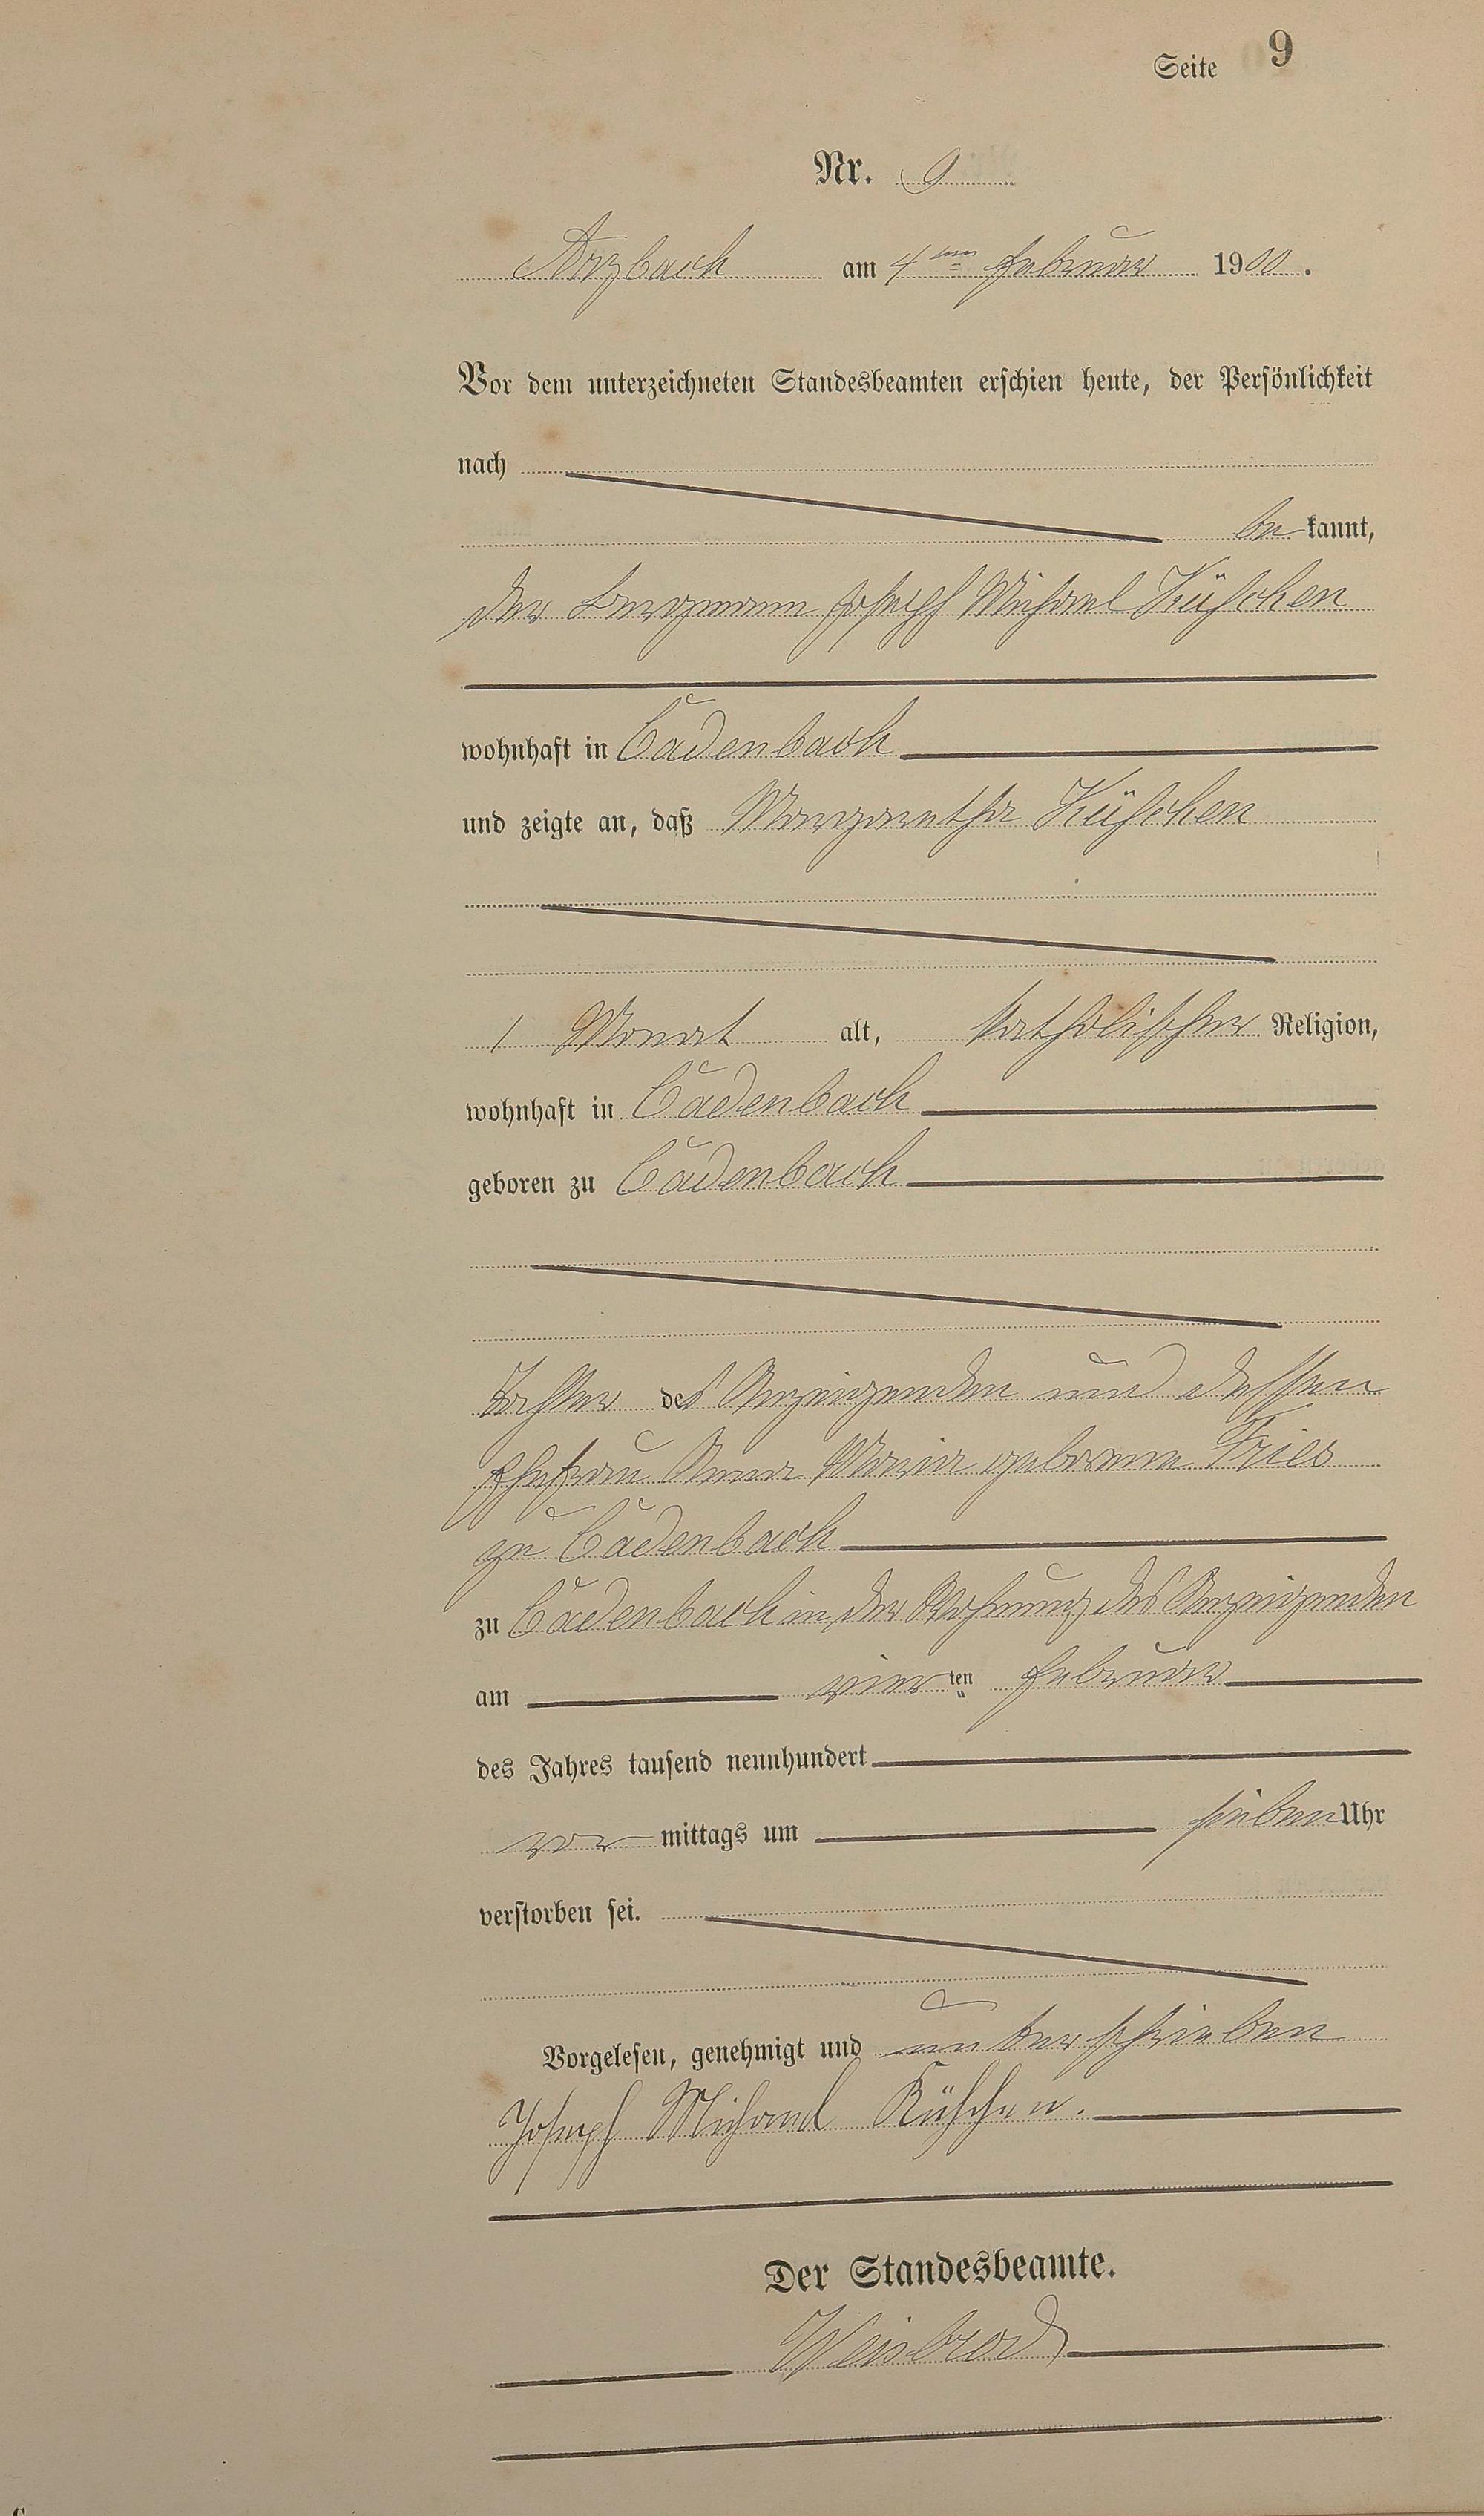 Seite 9
Nr. 9
Arzbach am 4ten Februar 1900.
Vor dem unterzeichneten Standesbeamten erschien heute, der Persönlichkeit
nach
bekannt,
der Bergmann Joseph Michael Küschen
wohnhaft in Cadenbach
und zeigte an, daß Margaretha Küschen
1 Monat alt, katholischer Religion,
wohnhaft in Cadenbach
geboren zu Cadenbach
Tochter des Anzeigenden und dessen
Ehefrau Anna Maria geborene Fries
zu Cadenbach
zu Cadenbach in der Wohnung des Anzeigenden
am vierten Februar
des Jahres tausend neunhundert
vor mittags um sieben Uhr
verstorben sei.
Vorgelesen, genehmigt und unterschrieben
Joseph Michael Küschen.
Der Standesbeamte.
Weisbrod